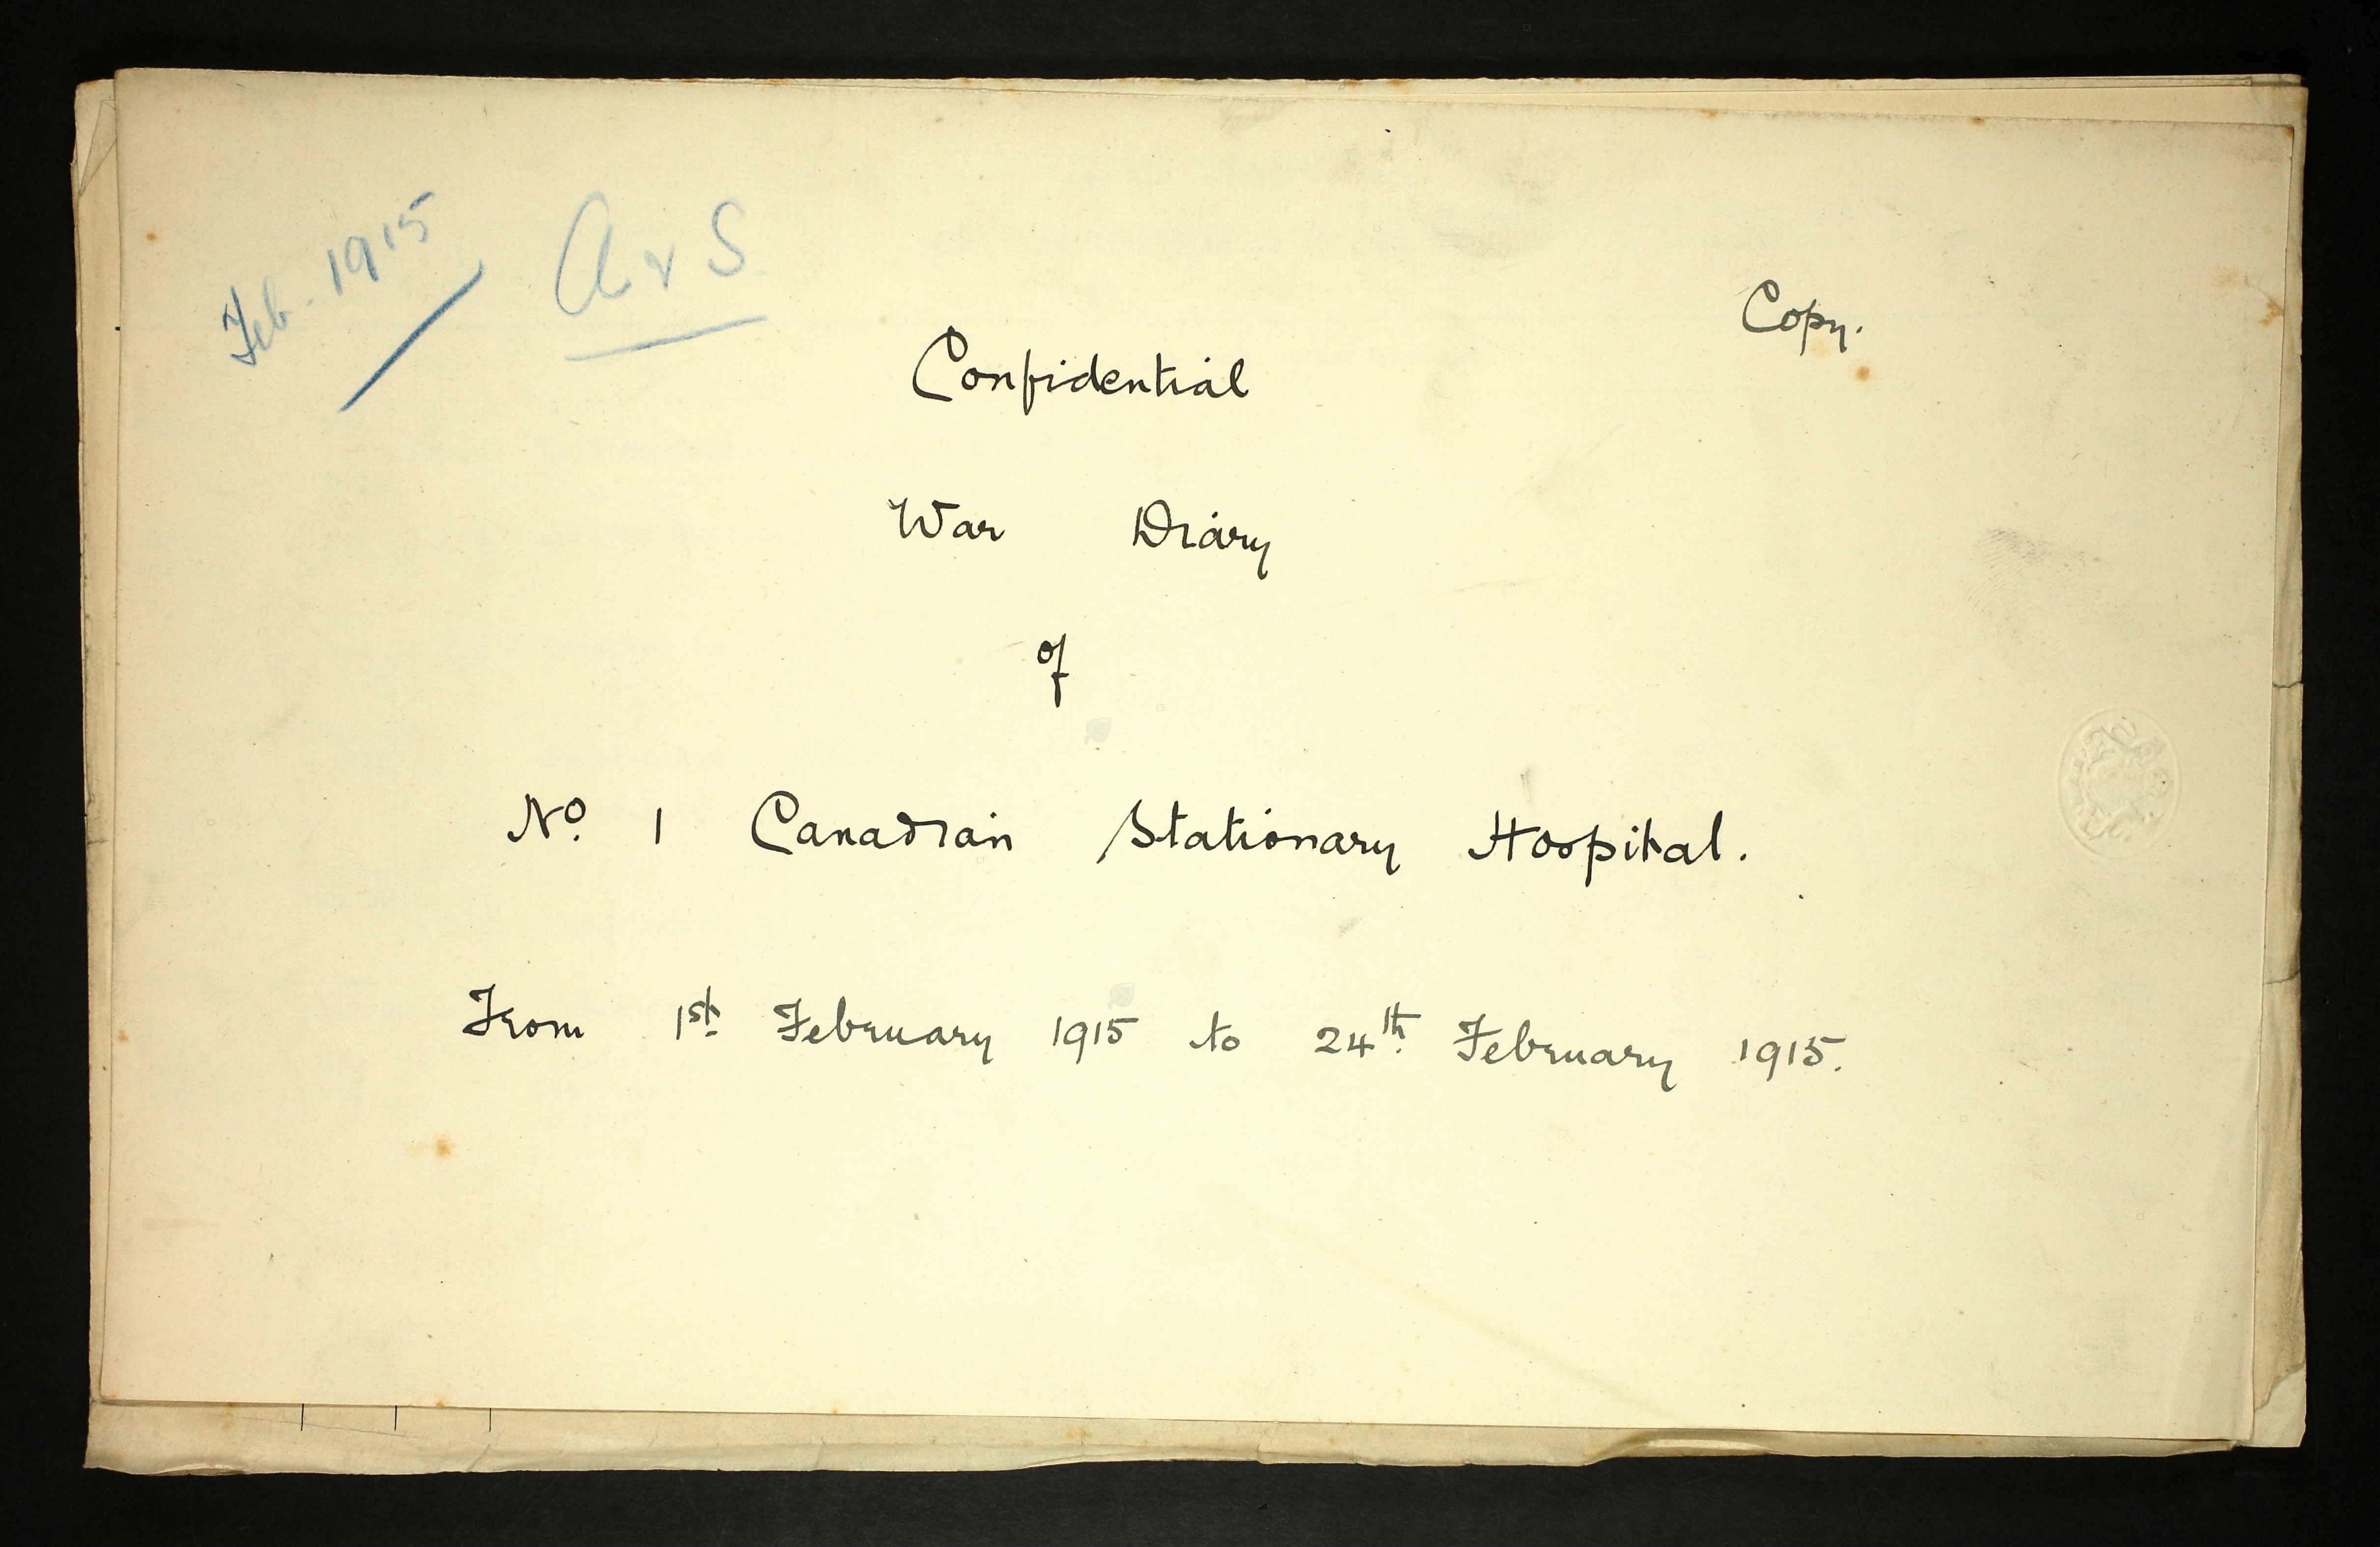 Feb. 1915
A & S
Copy.
Confidential
War Diary
of
No. 1 Canadian Stationary Hospital.
From 1st February 1915 to 24th February 1915.